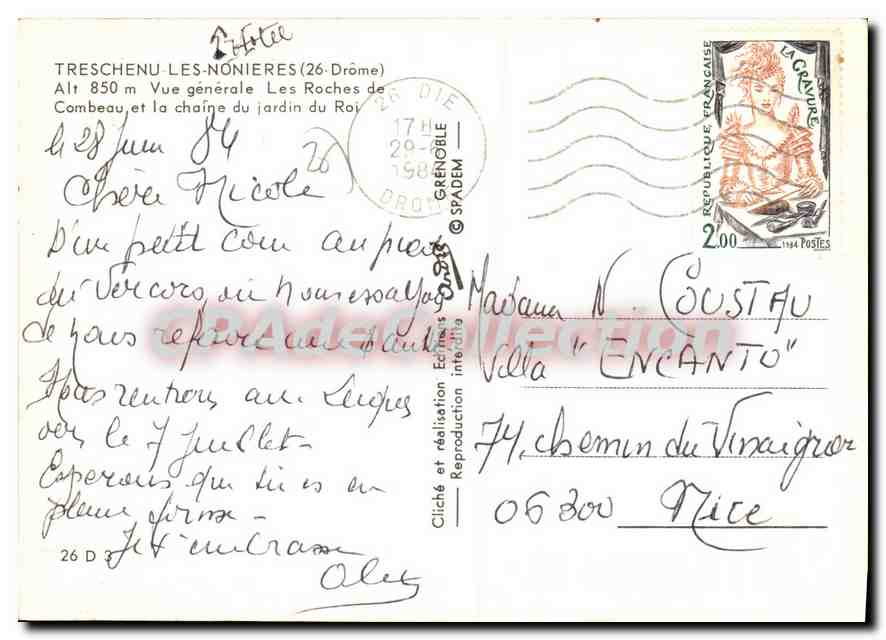 ↑ Hotel
TRESCHENU-LES-NONIERES (26-Drôme)
Alt 850 m Vue générale Les Roches de
Combeau et la chaîne du jardin du Roi
le 28 Juin 84
26
Chère Nicole
D'un petit coin au pied
du Vercors où nous essayons
de nous refaire une santé
Nous rentrons
vers le 7 Juillet -
Esperons que tu es en
pleine forme -
Je t'embrasse
26 D 3
Cliché et réalisation Editions André GRENOBLE
Reproduction interdite © SPADEM
26 DIE
17 H
29-6
1984
DROME
LA GRAVURE
REPUBLIQUE FRANÇAISE
2.00
1984 POSTES
Madame N. COUSTAU
Villa "ENCANTO"
74, chemin du Vinaigrier
06300 Nice
CPAdeCollection